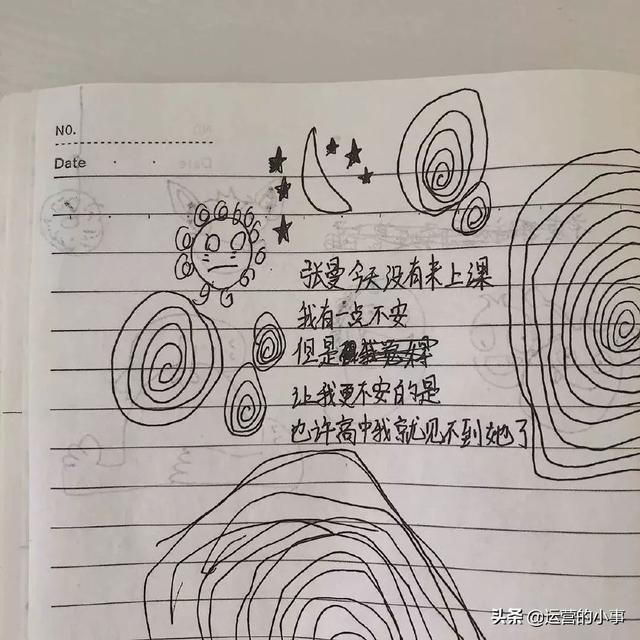 NO.
Date
张曼今天没有来上课
我有一点不安
但是
让我更不安的是
也许高中我就见不到她了
头条 @运营的小事